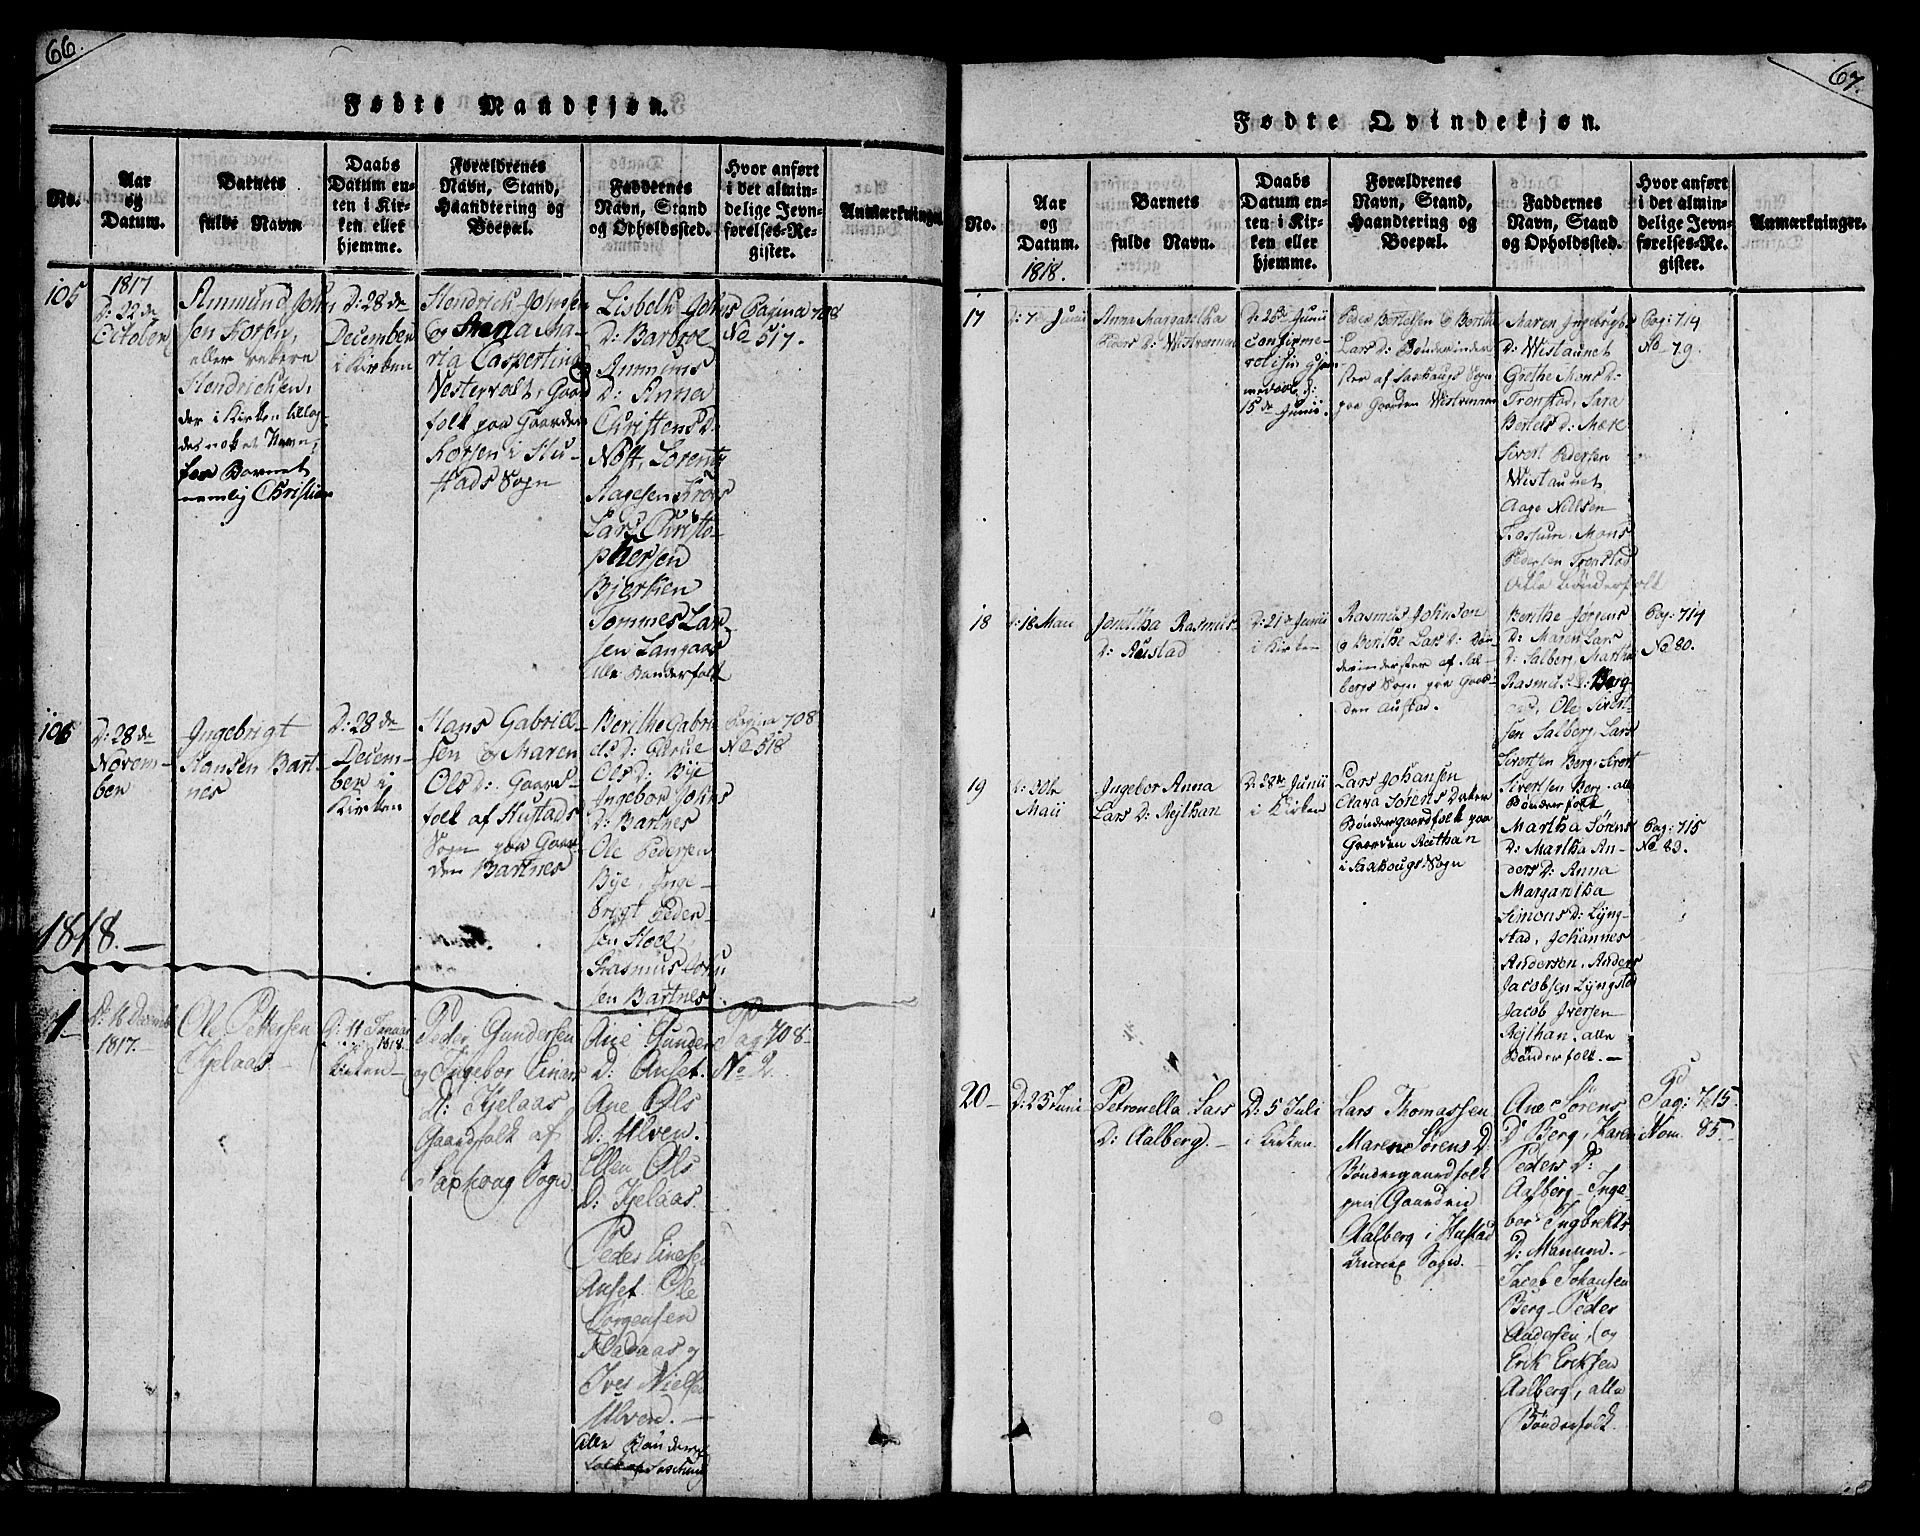 66.
Fødte Mandkjøn.
No.
Aar
og
Datum.
Barnets
fulde Navn
Daabs
Datum en-
ten i Kir-
ken eller
hjemme.
Forældrenes
Navn, Stand,
Haandtering og
Boepæl.
Faddernes
Navn, Stand
og Opholdssted.
Hvor anført
i det almin-
delige Jevn-
førelses-Re-
gister.
Anmærkninger.
105
1817
D: 22de
October
Ammund John
sen Korsen,
eller rettere
Hendrichsen,
der i Kirken tillag
des noket Navn,
for Barnet
nemlig Christian
D: 28de
December
i Kirken
Hendrich Johnsen
og Maria Ma-
ria Caspertina
Vestervolt, Gaard
folk paa Gaarden
Korsen i Hu-
stads Sogn
Lisbeth Johns
D: Barbroe
Ammuns
D: Anna
Christens D:
Nøst, Lorentz
Aagesen Kroxs
Lars Christo-
phersen
Bjerken
Tommes Lar-
sen Langaas
Alle Bønderfolk
Pagina 708
No 517.
106
D: 28de
Novem-
ber
Ingebrigt
Hansen Bart-
nes
D: 28de
Decem-
ber i
Kirken
Hans Gabriel-
sen & Maren
Ols D: Gaard-
folk af Hustads
Sogn paa Gaar-
den Bartnes
Berithe Gabri
els D: Gurue
Ols D: Bye
Ingebor Johns
D: Bartnes
Ole Pedersen
Bye, Inge-
brigt Peder-
sen Hoel,
Rasmus John
sen Bartnes
Pagina 708
No 518
1818.
1
D: 16 Decemb
1817.
Ole Pettersen
Kjelaas.
D: 11 Januar
1818
Kirken
Peder Gundersen
og Ingebor Einars
D: Kjelaas
Gaardfolk af
Saxhoug Sogn.
Ane Gunders
D: Anset.
Ane Ols
D: Ulven.
Ellen Ols
D: Kjelaas.
Peder Einesen
Anset. Ole
Jørgensen
Fladaas og
Iver Nielsen
Ulven.
Alle Bønder
Pag 708
No 2.
67.
Fødte Qvindekjøn.
No.
Aar
og
Datum.
1818.
Barnets
fulde Navn.
Daabs
Datum en-
ten i Kir-
ken eller
hjemme.
Forældrenes
Navn, Stand,
Haandtering og
Boepæl.
Faddernes
Navn, Stand
og Opholdssted.
Hvor anført
i det almin-
delige Jevn-
førelses-Re-
gister.
Anmærkninger.
17
D: 7 Junii
Anna Margaretha
Peders D: Westrumen
D: 25de Junii
confirme-
ret i sin Hjem
medaab d:
15de Junii.
Peder Bertelsen & Berithe
Lars D: Bønderinder
ster af Saxhougs Sogn
paa Gaarden Westrumen
Maren Ingebrigts
D: Wistaunet
Grethe Mons D:
Tronstad, Sara
Bertels D: Mære
Sivert Pedersen
Wistaunet,
Aage Nielsen
Mons
Pedersen Tronstad
Alle Bønderfolk
Pag: 714
No 79.
18
D: 18 Maii
Jonetha Rasmus-
D: Austad
D: 21de Junii
i Kirken
Rasmus Johnson
og Berithe Lars D: Bøn
derinderster af Sal-
bergs Sogn paa Gaar-
den Austad.
Berithe Jørgens
D: Maren Lars
D: Salberg, Martha
Rasmus D: Berg
Ole Sivert-
sen Salberg, Lars
Sivertsen Berg, Sivert
Sivertsen Berg, alle
Bønderfolk
Pag: 714
No 80.
19
D: 30te
Maii
Ingebor Anna
Lars D: Rejlhan
D: 28de Junii
i Kirken
Lars Johansen
Clara Sørens Datter
Bøndergaardfolk paa
Gaarden Reithan
i Saxhougs Sogn
Martha Sørens
D: Martha An-
ders D: Anna
Margaretha
Simons D: Lyng-
stad, Johannes
Andersen, Anders
Jacobsen Lyngstad
Jacob Iversen
Rejlhan, alle
Bønderfolk.
Pag: 715
No 83.
20
D: 25 Juni
Petronella Lars
D: Aalberg.
D: 5 Juli
i Kirken.
Lars Thomassen
Maren Sørens D:
Bøndergaardfolk
paa Gaarden
Aalberg i Hustad
Sogn.
Ane Sørens
D: Berg, Karen
Peders D:
Aalberg, Inge-
bor Ingbrekts
D: Manum.
Jacob Johansen
Berg, Peder
Andersen, og
Erik Eriksen
Aalberg, alle
Bønderfolk.
Pag: 715.
Nom. 85.